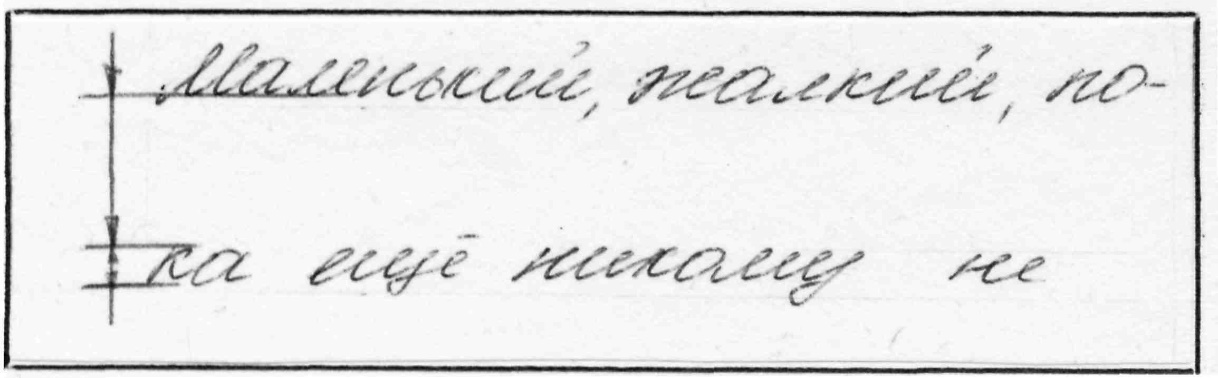 Маленький, жалкий, по-
ка ещё никому не